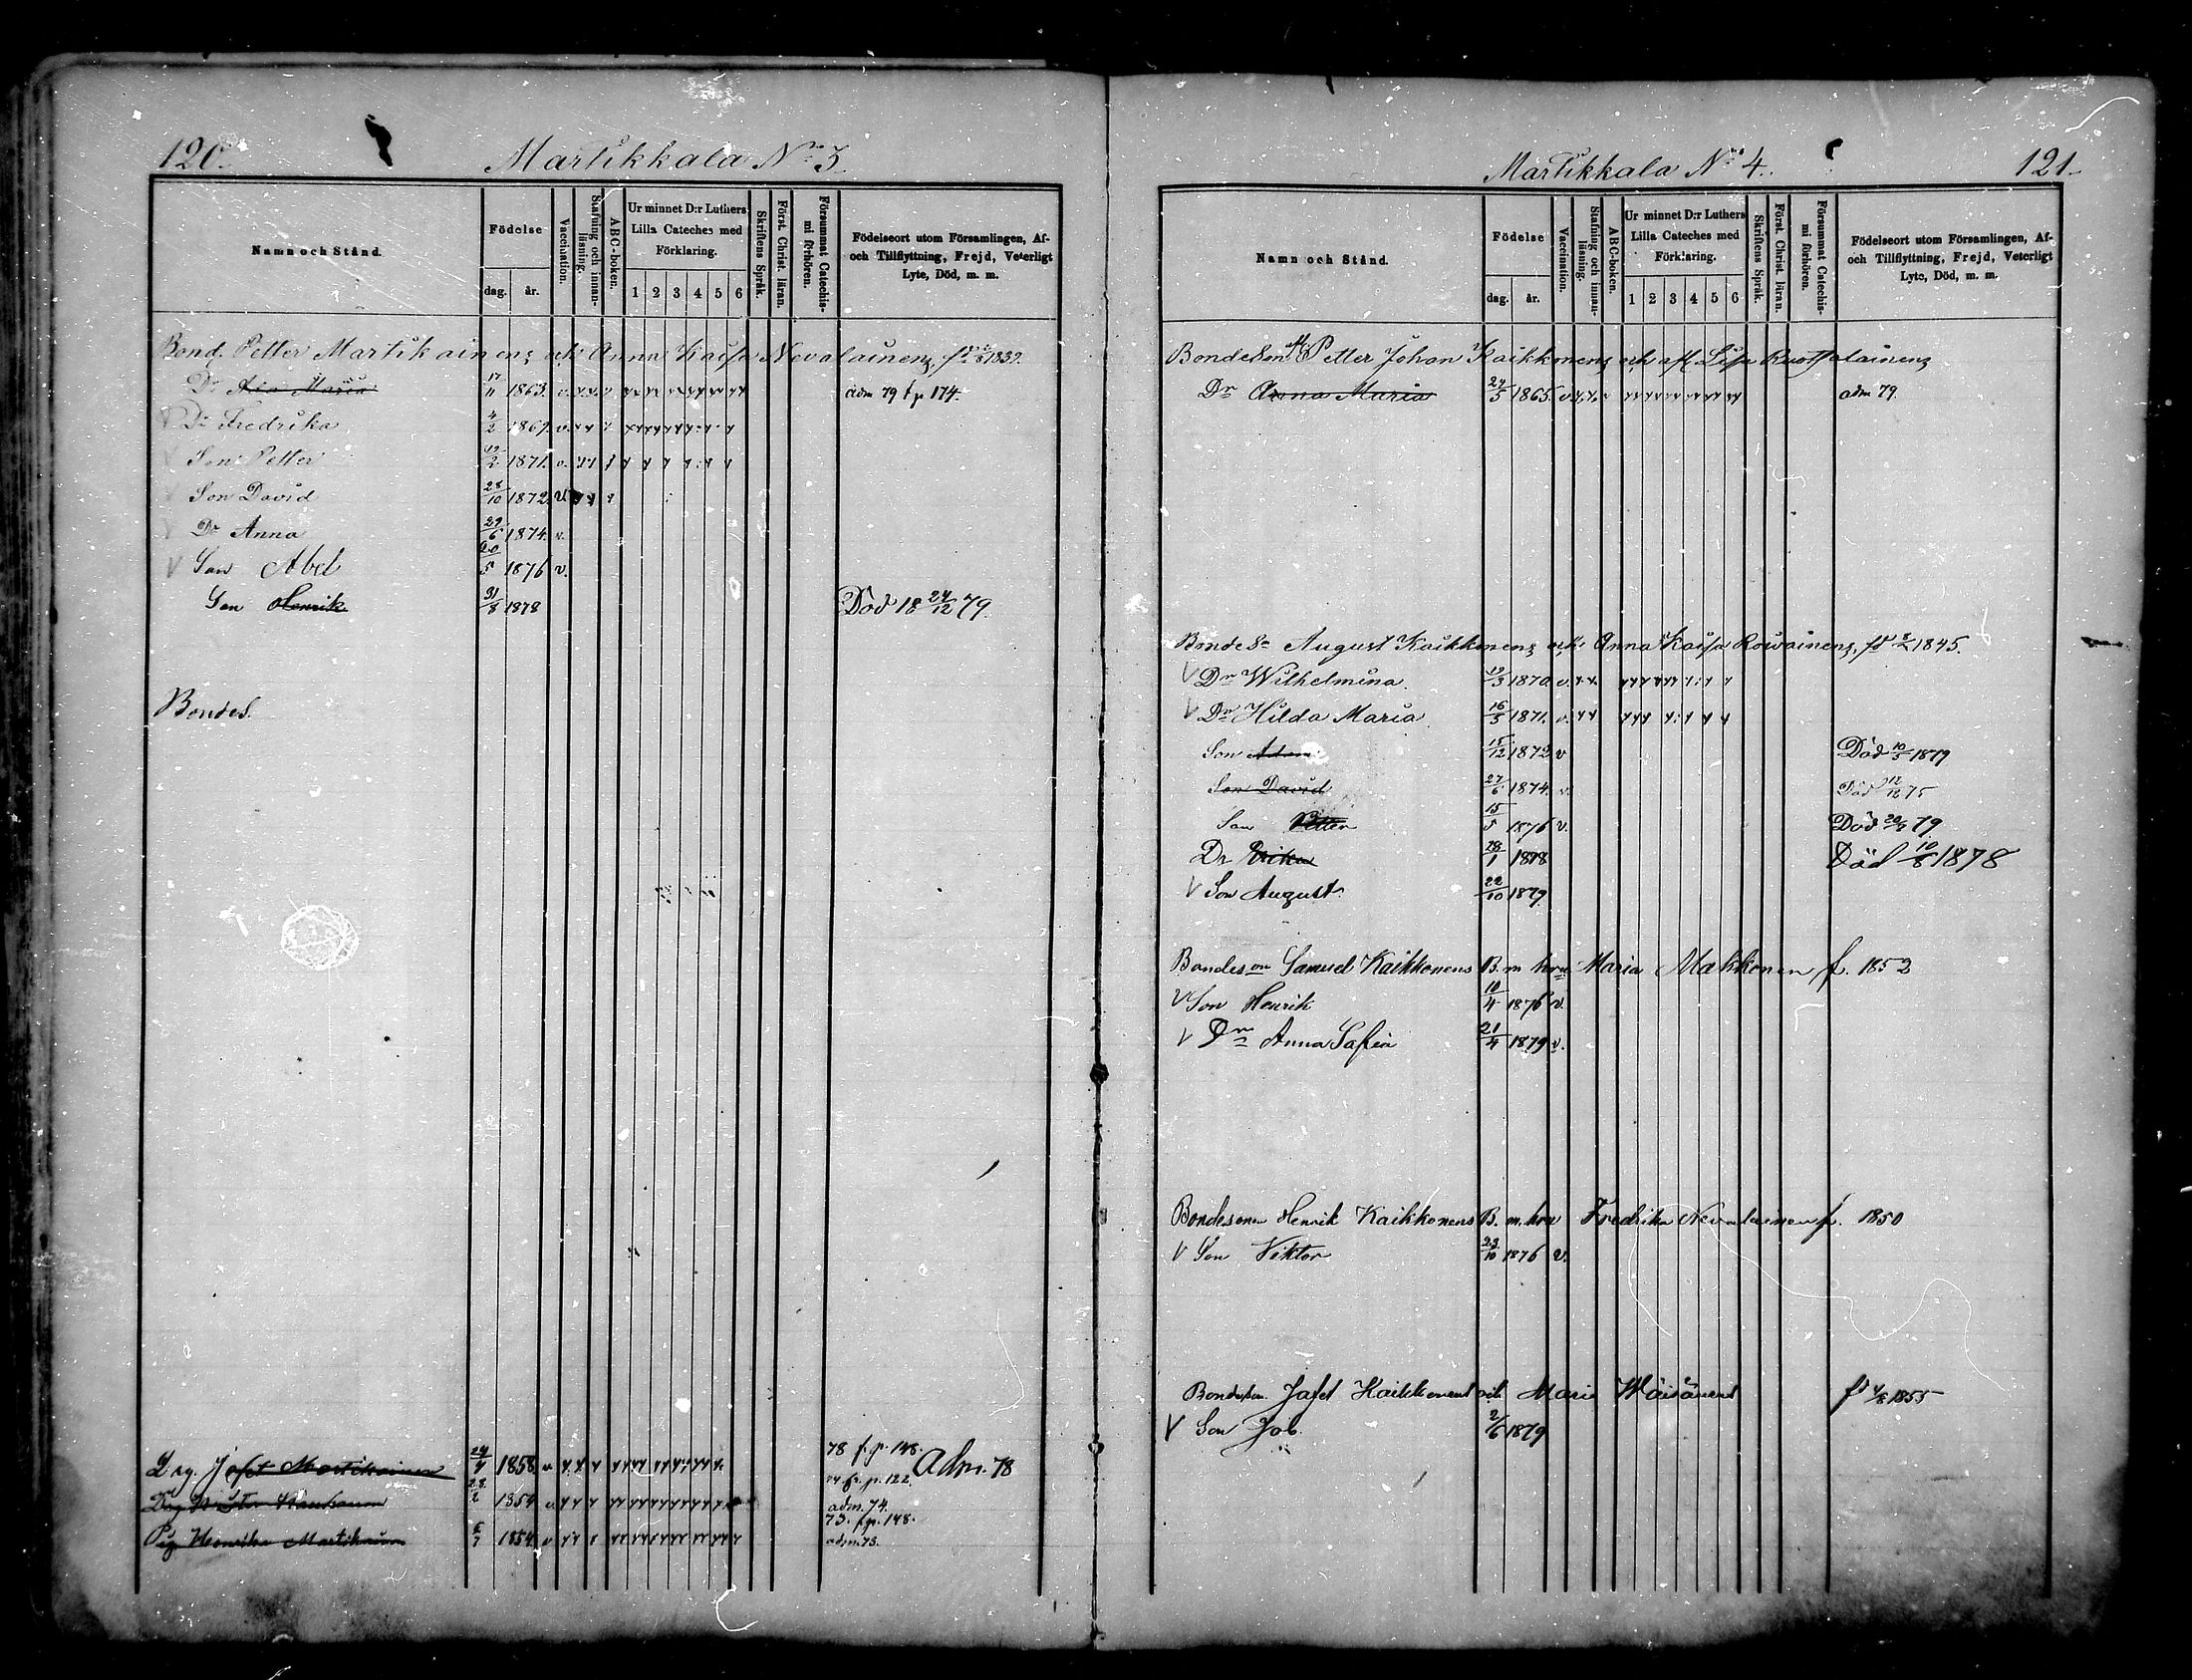 120.
Martikkala No 3.
Namn och Stånd.
Födelse
dag. år.
Vaccination.
Stafning och innanläsning.
ABC-boken.
Ur minnet D:r Luthers Lilla Cateches med Förklaring.
1 2 3 4 5 6
Skriftens Språk.
Först. Christ. läran.
Försummat Catechismi förhören.
Födelseort utom Församlingen, Af- och Tillflyttning, Frejd, Veterligt Lyte, Död, m. m.
Bond. Petter Martikainens och Anna Kaisa Nevalainens, fd 1839.
Dr Maria 17/11 1863. v. adm 79 f p 174.
V Dr Fredrika 4/2 1869. v.
V Son Petter 1871. v.
V Son David 28/10 1872. v.
V Dr Anna 29/6 1874. v.
V Son Abel 20/5 1876 v.
Son Henrik 31/8 1878 Död 18 24/12 79.
Bondes.
Drg. Jafet Martikainen 24/4 1858 v 78 f. p. 148. Adm. 78
Drg 28/2 1854 v 74 fr. p. 122. adm. 74.
Pig. Henrika Martikainen 6/7 1854 v 73. f p. 148. adm 73.
Martikkala No 4.
121.
Namn och Stånd.
Födelse
dag. år.
Vaccination.
Stafning och innanläsning.
ABC-boken.
Ur minnet D:r Luthers Lilla Cateches med Förklaring.
1 2 3 4 5 6
Skriftens Språk.
Först. Christ. läran.
Försummat Catechismi förhören.
Födelseort utom Församlingen, Af- och Tillflyttning, Frejd, Veterligt Lyte, Död, m. m.
Bondeson Petter Johan Kaikkonens och afl Lisa Ruotsalainens
Dr Anna Maria 24/5 1865. v adm 79.
Bonde Sn August Kaikkonens och Anna Kaisa Roivainens, fd 1845.
V Dr Wilhelmina. 19/3 1870. v.
V Dr Hilda Maria 16/5 1871. v.
Son Adam 15/12 1872 v Död 10/5 1879
Son David 27/6 1874. v. Död 12/12 75
Son Petter 15/5 1876 v. Död 79
Dr Erika 28/1 1878 Död 10/8 1878
V Son August. 22/10 1879
Bondeson Samuel Kaikkonens B. m. hru Maria Makkonen f. 1852
V Son Henrik 10/4 1876 v.
V Dr Anna Sofia 21/4 1879 v.
Bondesonen Henrik Kaikkonens B. m. hru Fredrika Nevalainen f. 1850
V Son Viktor 23/10 1876 v.
Bondeson Jafet Kaikkonens och Maria Wäisänens fd 1855
V Son Job. 2/6 1879